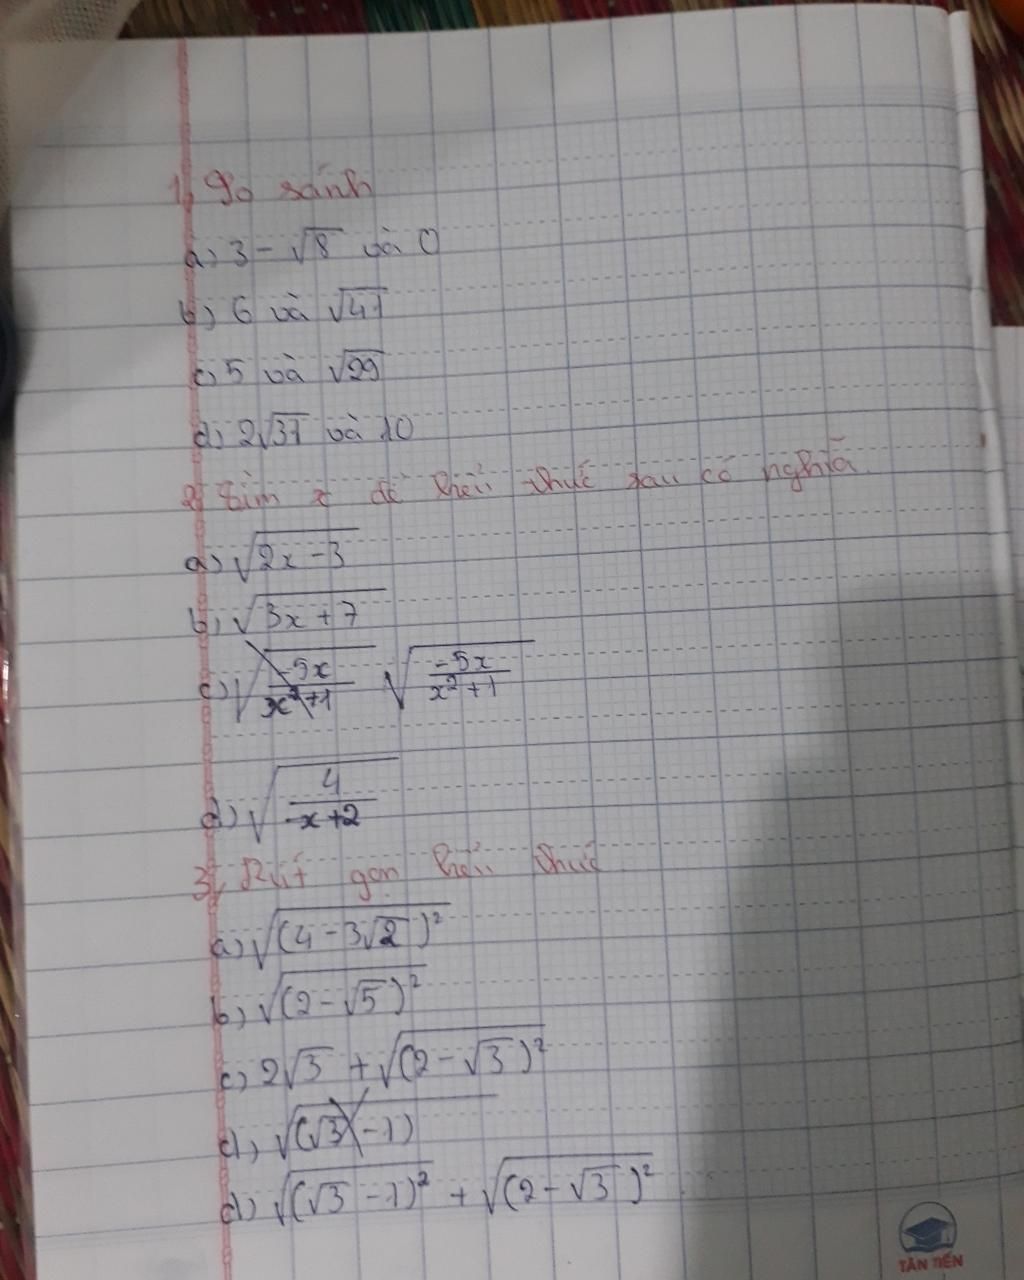 1, So sánh
a) 3 - √8 và 0
b) 6 và √41
c) 5 và √29
d) 2√31 và 10
2, Tìm x để biểu thức sau có nghĩa
a) √(2x - 3)
b) √(3x + 7)
c) √(-5x/(x² + 1)) √(-5x/(x² + 1))
d) √(4/(-x + 2))
3, Rút gọn biểu thức
a) √((4 - 3√2)²)
b) √((2 - √5)²)
c) 2√3 + √((2 - √3)²)
d) √((√3 - 1)
d) √((√3 - 1)²) + √((2 - √3)²)
TÂN TIẾN